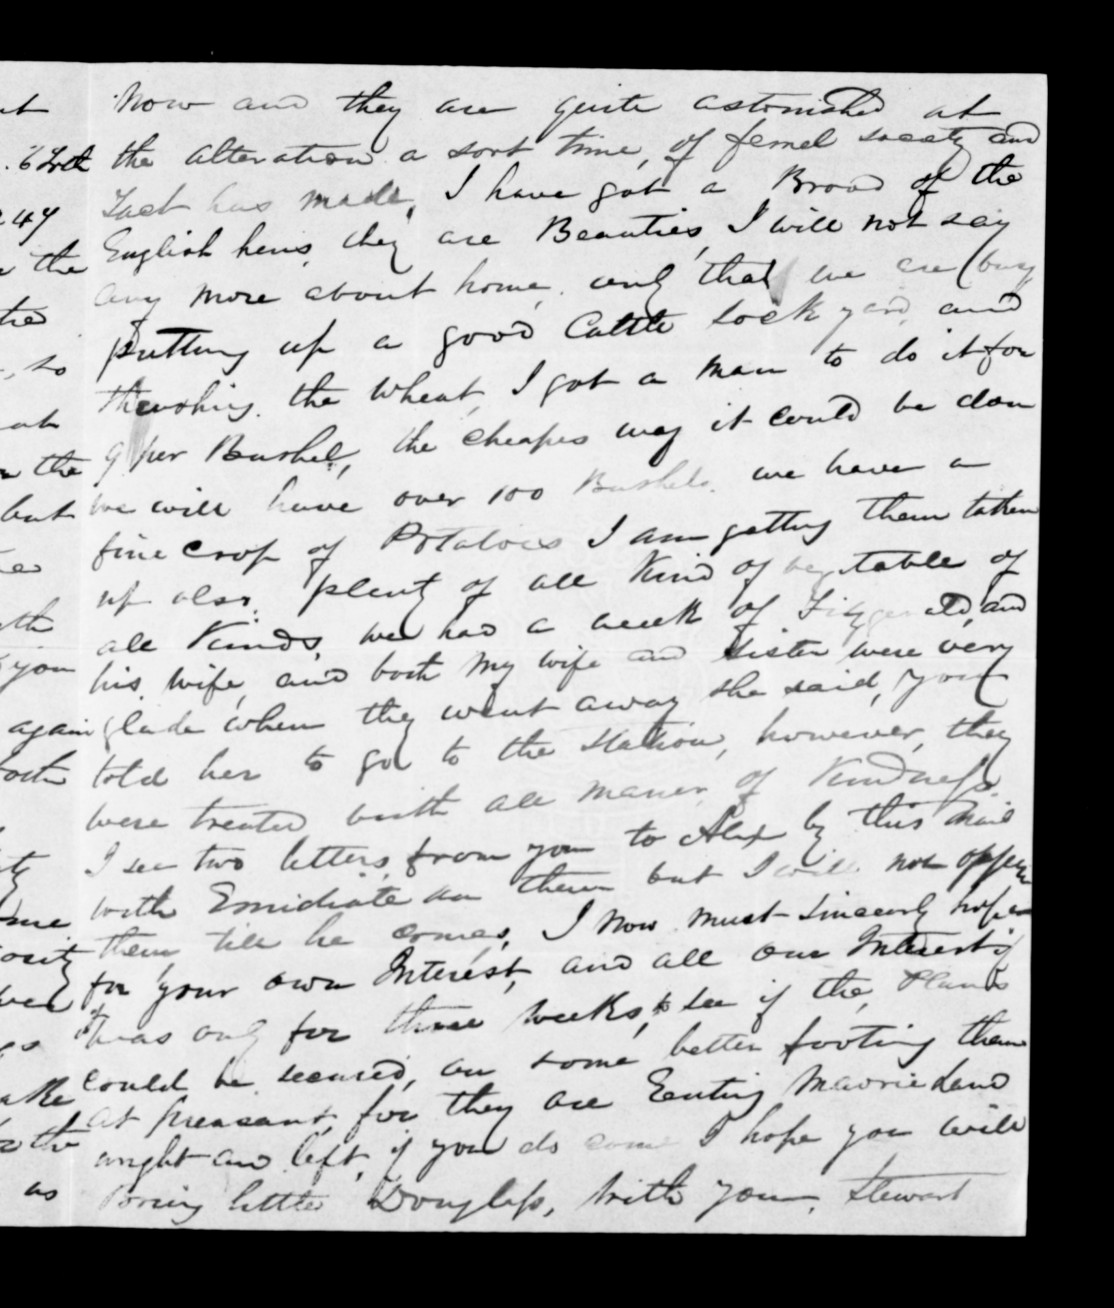 Now and they are quite astonished at
the alteration a sort time, of femel society and
Tact has made, I have got a Brood of the
English hens, they are Beauties, I will not say
any more about home. only that we are busy
putting up a good Cattle sock yard, and
thrashing the Wheat, I got a man to do it for
9 per Bushel, the cheapes way it could be don
we will have over 100 Bushels. we have a
fine crop of Potatoies I am getting them taken
up also. plenty of all Kind of vegetable of
all Kinds, we had a week of Fizgerald, and
his wife, and both my wife and sister were very
glade when they went away she said, you
told her to go to the Station, however, they
were treated with all maner of Kindness.
I see two letters, from you to Alex by this Mail
with Emidiate on them but I will not oppen
them till he comes, I now must sincearly hope
for your own Interest, and all our Interest if
it was only for three weeks, to see if the, Lands
could be secured, on some better footing them
at preasant, for they are Eenting Maorie Land
wright and left, if you do come I hope you will
Bring little Douglass, with you, Stewart
ut
247
the
so
the
but
you
again
as